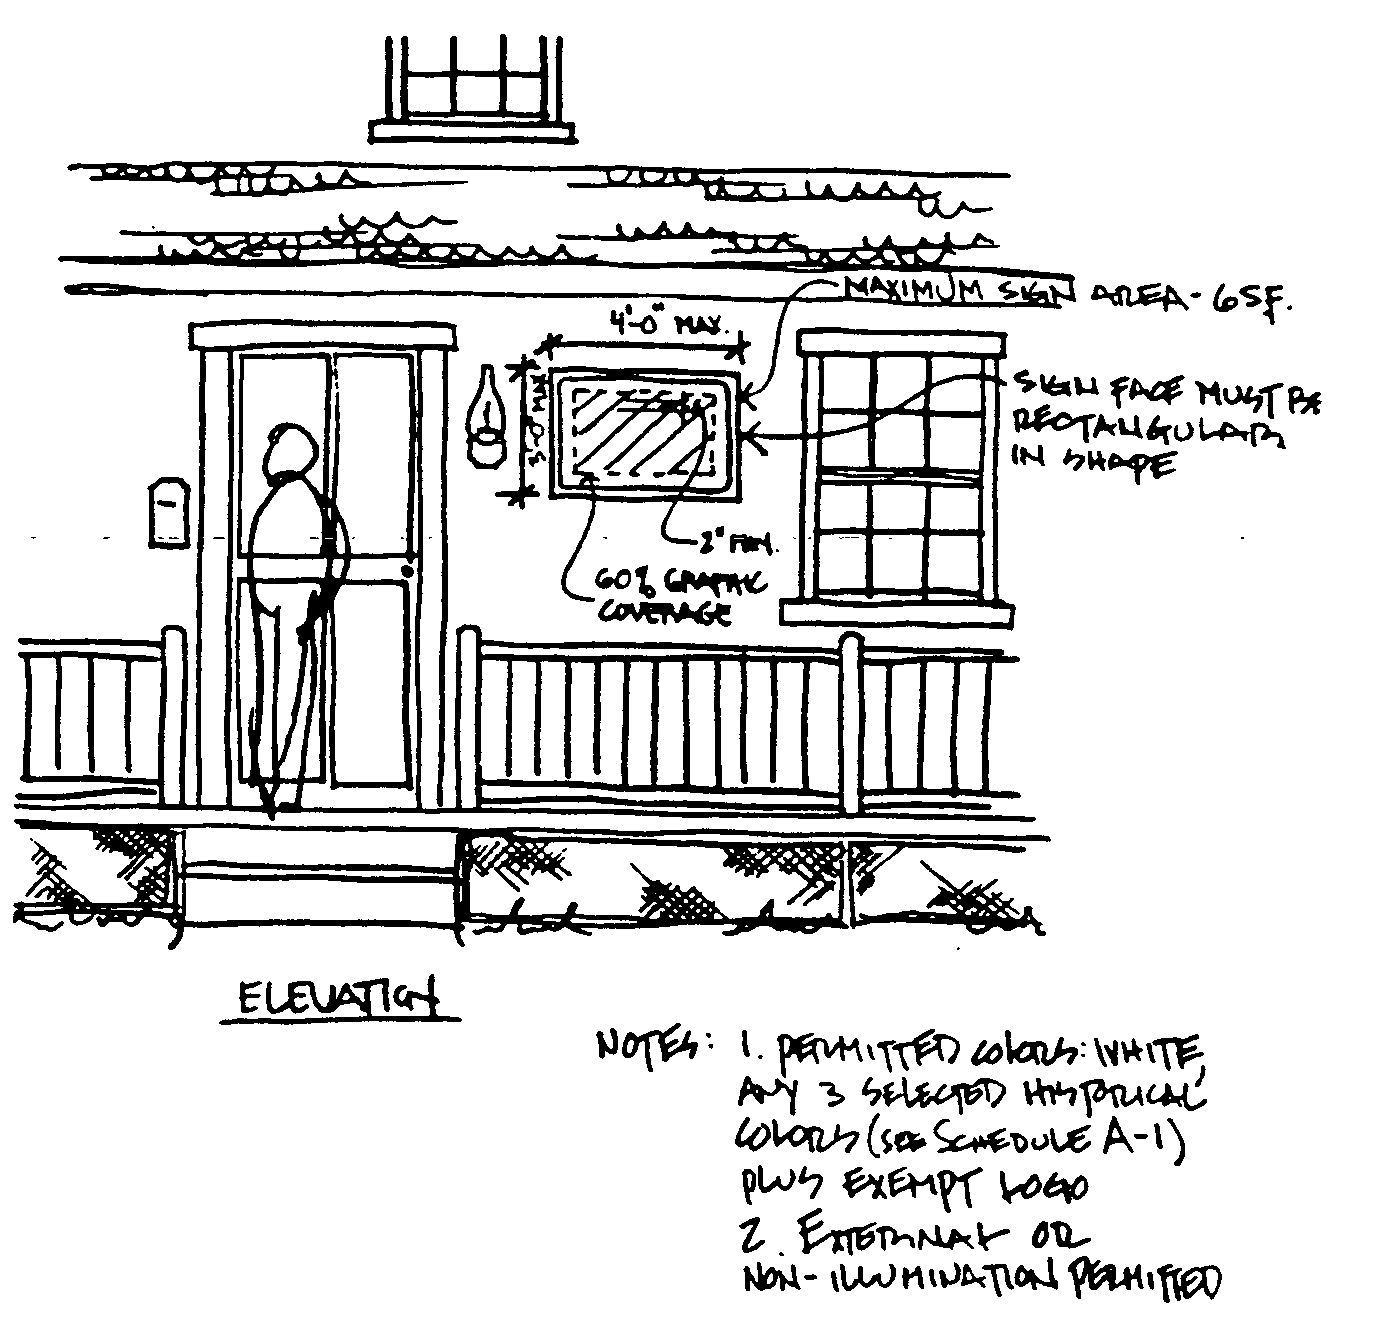 MAXIMUM SIGN AREA - 6 SF.
4'-0" MAX.
3'-0" MAX
SIGN FACE MUST BE
RECTANGULAR
IN SHAPE
2" MIN.
60% GRAPHIC
COVERAGE
ELEVATION
NOTES: 1. PERMITTED COLORS: WHITE,
ANY 3 SELECTED HISTORICAL
COLORS (SEE SCHEDULE A-1)
PLUS EXEMPT LOGO
2. EXTERNAL OR
NON-ILLUMINATION PERMITTED